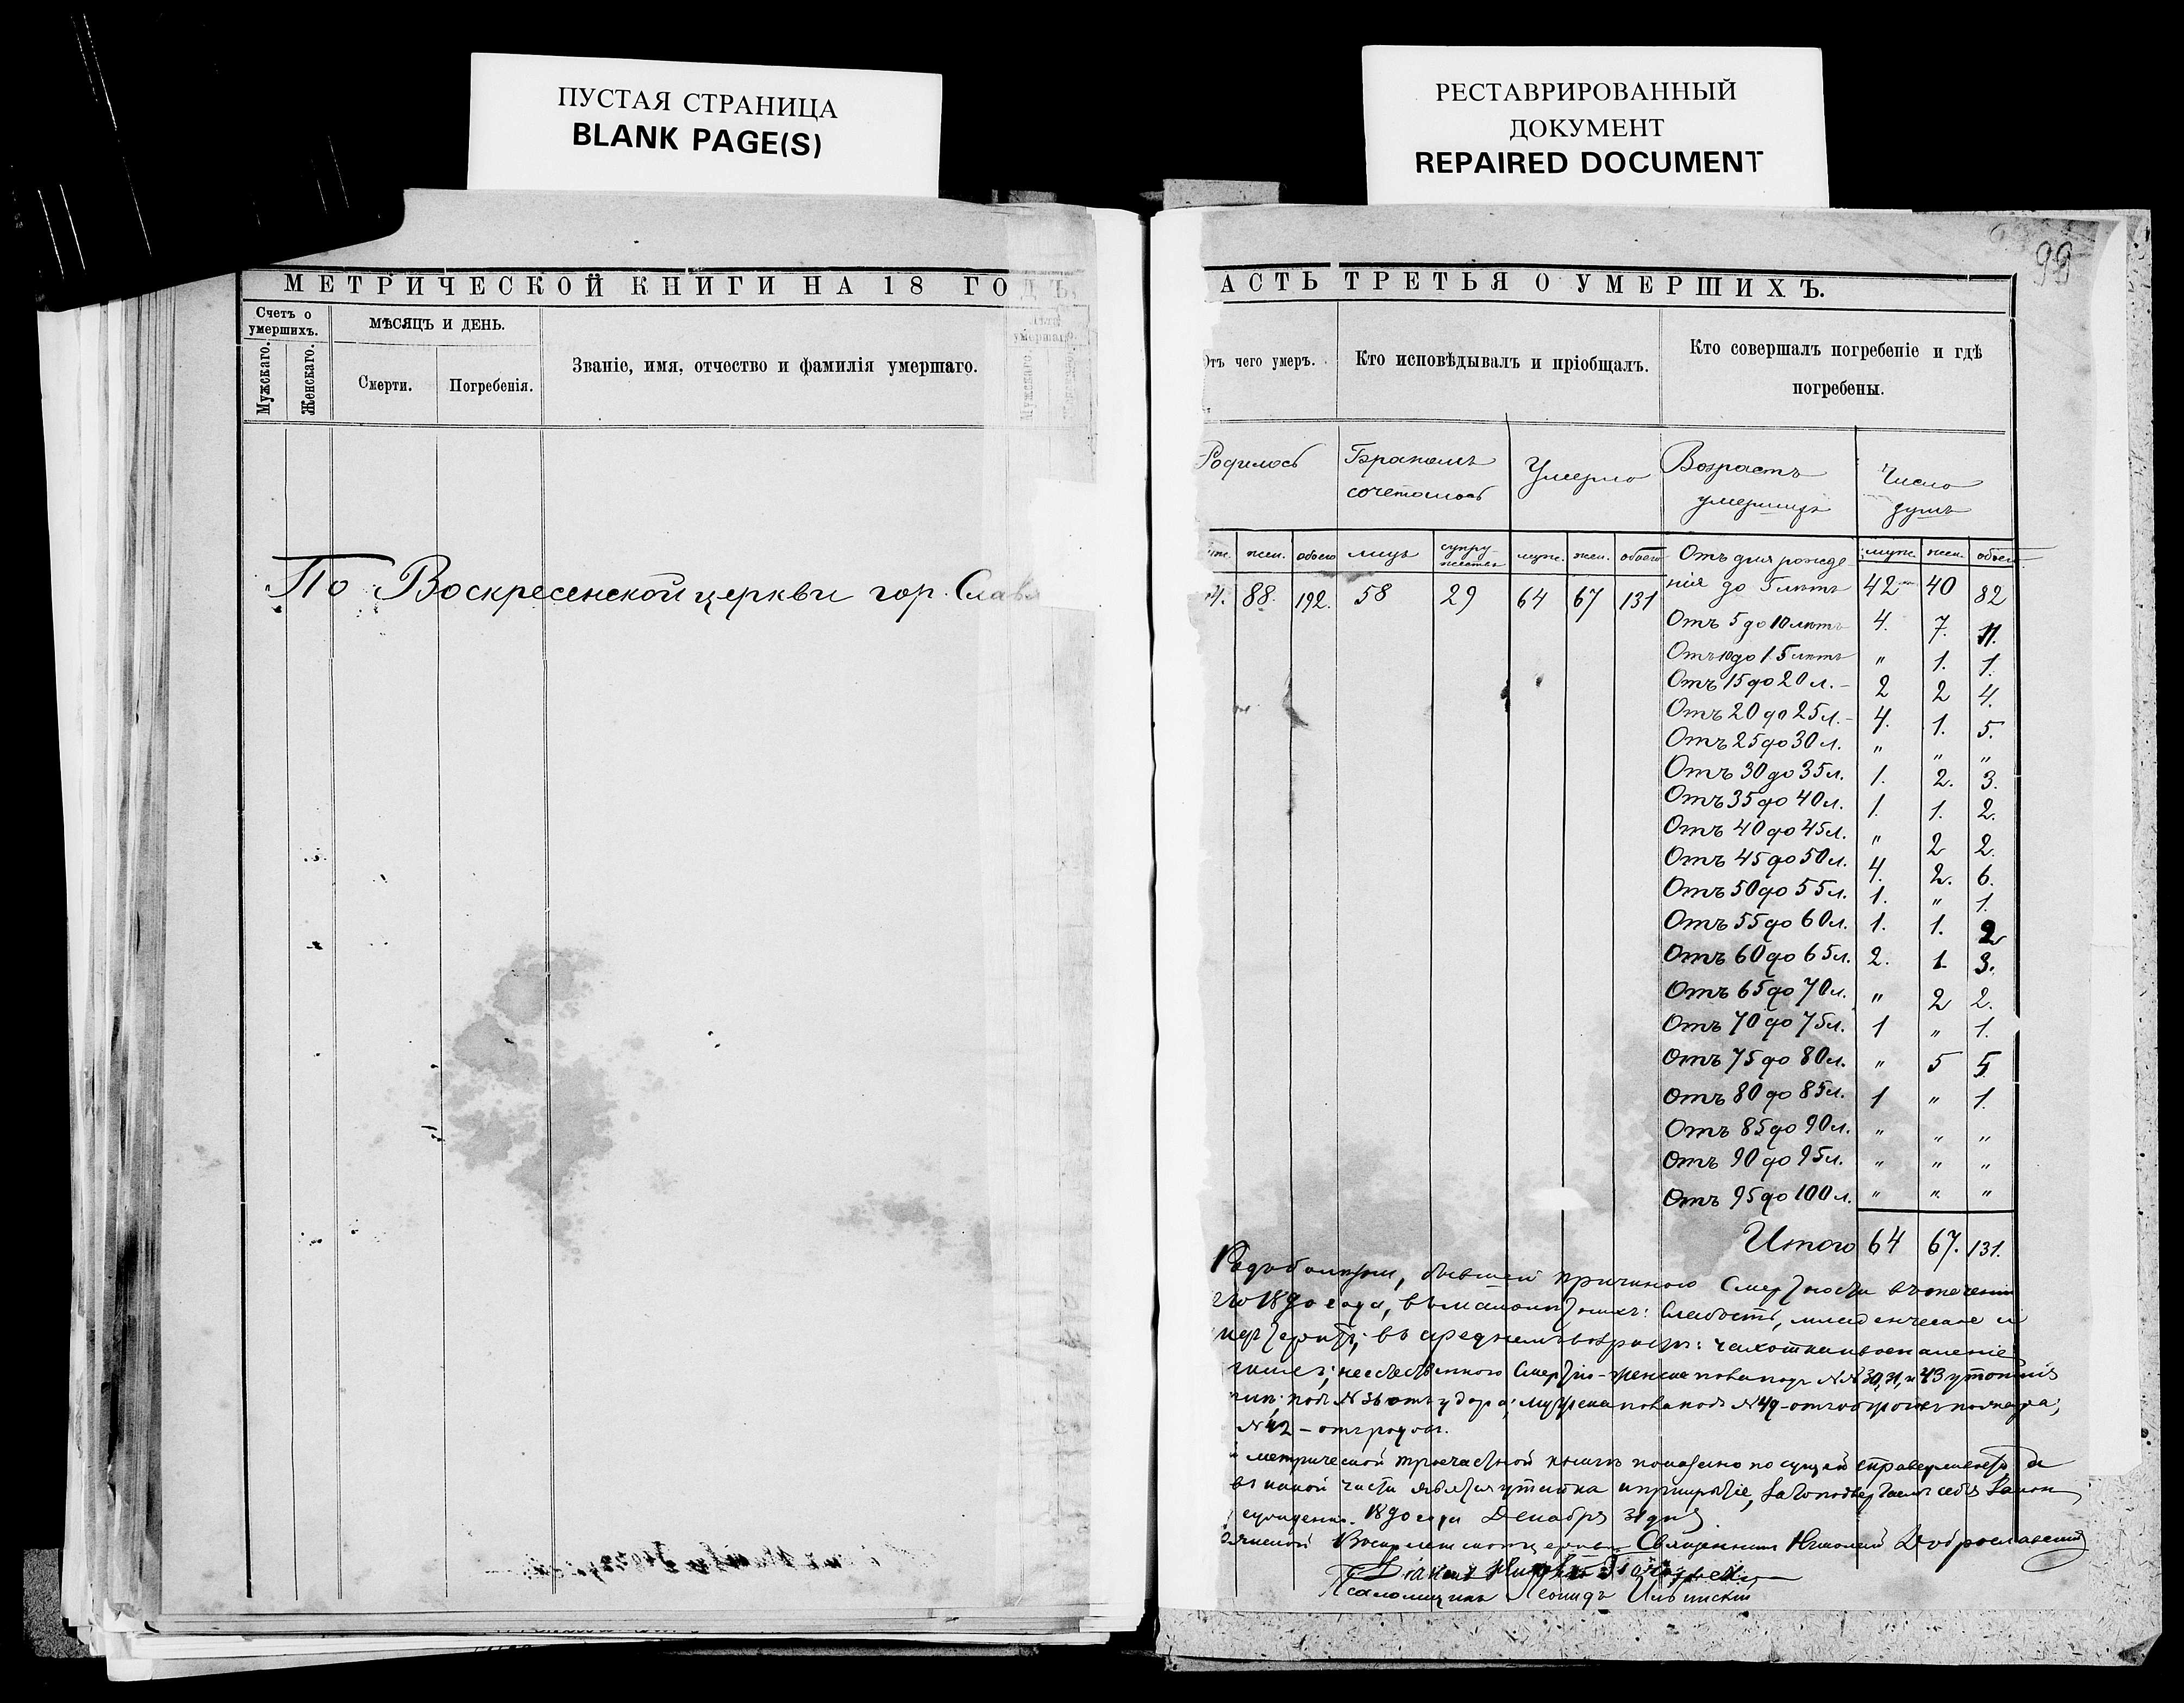 ПУСТАЯ СТРАНИЦА
BLANK PAGE(S)
РЕСТАВРИРОВАННЫЙ
ДОКУМЕНТ
REPAIRED DOCUMENT
99
МЕТРИЧЕСКОЙ КНИГИ НА 18 ГОДЪ
Счетъ о умершихъ.
Мужскаго.
Женскаго.
МѢСЯЦЪ И ДЕНЬ.
Смерти.
Погребенія.
Званіе, имя, отчество и фамилія умершаго.
По Воскресенской церкви гор.
АСТЬ ТРЕТЬЯ О УМЕРШИХЪ.
Отъ чего умеръ.
Кто исповѣдывалъ и пріобщалъ.
Кто совершалъ погребеніе и гдѣ погребены.
Родилось
Бракомъ сочеталось
Умерло
Возрастъ умершихъ
Число душъ
жен. обоего лицъ супружествъ муж. жен. обоего
муж. жен. обоего
4. 88. 192. 58 29 64 67 131
Отъ дня рожденія до 5 лѣтъ 42 40 82
Отъ 5 до 10 лѣтъ 4. 7. 11.
Отъ 10 до 15 лѣтъ " 1. 1.
Отъ 15 до 20 л. 2 2 4.
Отъ 20 до 25 л. 4. 1. 5.
Отъ 25 до 30 л. " " "
Отъ 30 до 35 л. 1. 2. 3.
Отъ 35 до 40 л. 1. 1. 2.
Отъ 40 до 45 л. " 2 2.
Отъ 45 до 50 л. 4. 2. 6.
Отъ 50 до 55 л. 1. " 1.
Отъ 55 до 60 л. 1. 1. 2
Отъ 60 до 65 л. 2. 1. 3.
Отъ 65 до 70 л. " 2 2.
Отъ 70 до 75 л. 1 " 1.
Отъ 75 до 80 л. " 5 5
Отъ 80 до 85 л. 1 " 1.
Отъ 85 до 90 л. " " "
Отъ 90 до 95 л. " " "
Отъ 95 до 100 л. " " "
Итого 64 67. 131.
бывшей причиною смертности въ теченіи
1890 года, слабость, младенческая
въ среднемъ возрастѣ: чахотка воспаленіе
женска пола подъ №№ 30, 31, и 43
подъ № 36 отъ удара; муж. пола подъ № 49
№ 42 – отъ родовъ.
метрической троечастной книгѣ показано по сущей справедливости
части утайка
1890 года Декабря 31 дня
Воскресенской церкви Священникъ Николай Доброславскій
Діаконъ
Псаломщикъ Леонидъ Ильинскій